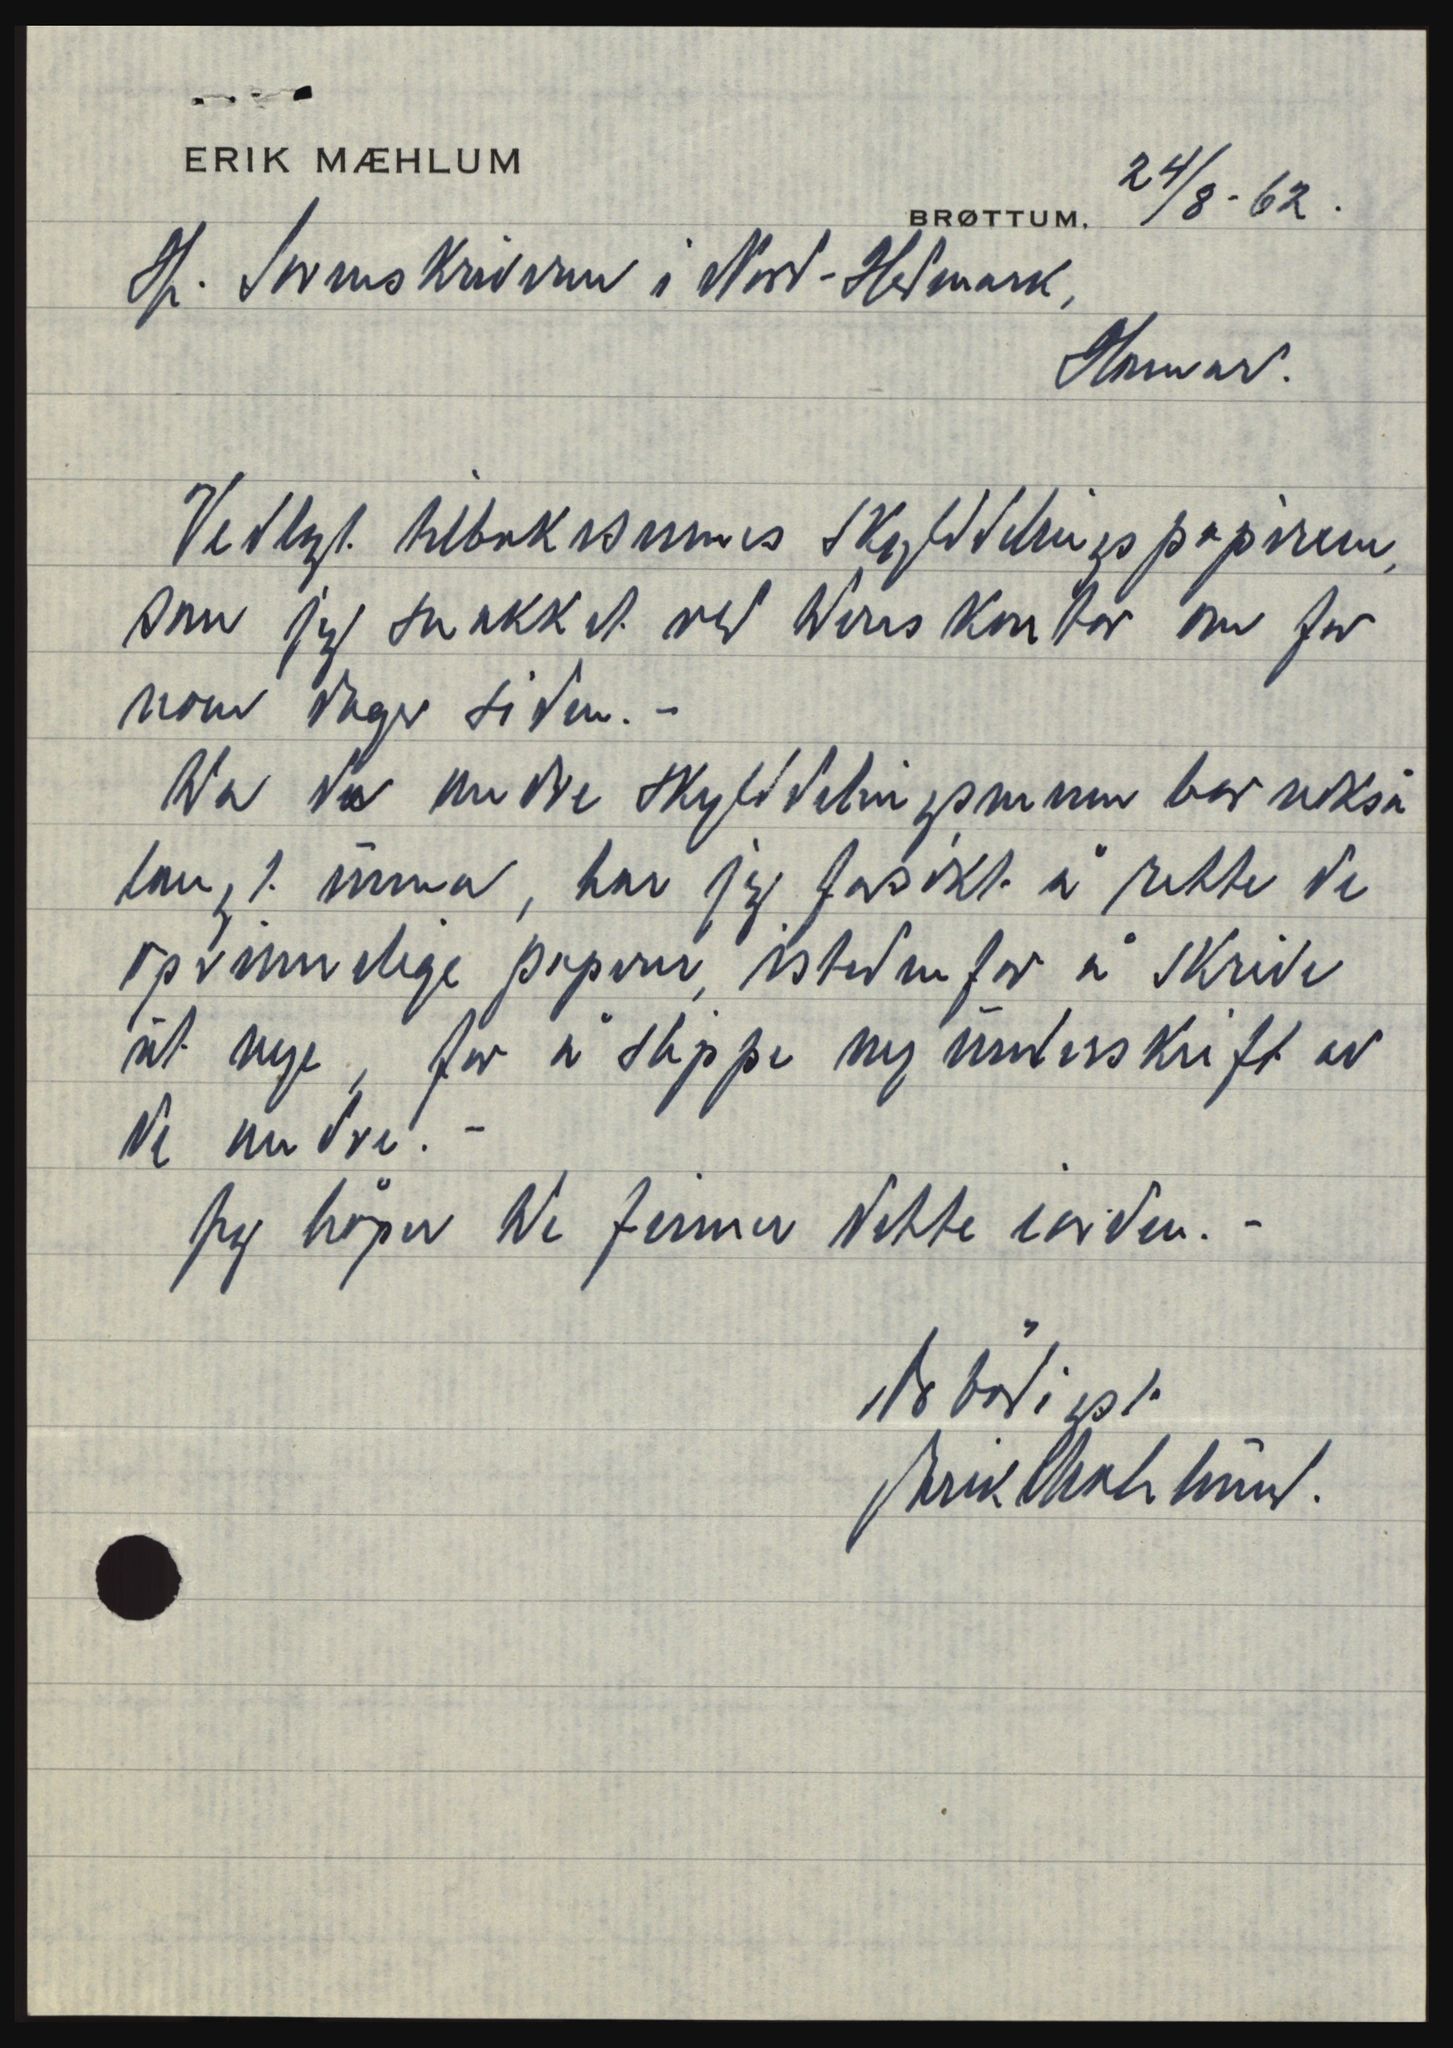 ERIK MÆHLUM
BRØTTUM. 24/8-62.
Hr. Sorenskriveren i Nord-Hedmark,
Hamar.
Vedlagt tilbakesennes skylddelingspapirene,
som jeg snakket ved Deres kontor om for
noen dager siden. -
Da de andre skylddelingsmenn bor nokså
langt unna, har jeg forsøkt å rette de
oprinnelige papirer, istedenfor å skrive
ut nye, for å slippe ny underskrift av
de andre. -
Jeg håper De finner dette iorden. -
Ærbødigst
Erik Mæhlum.